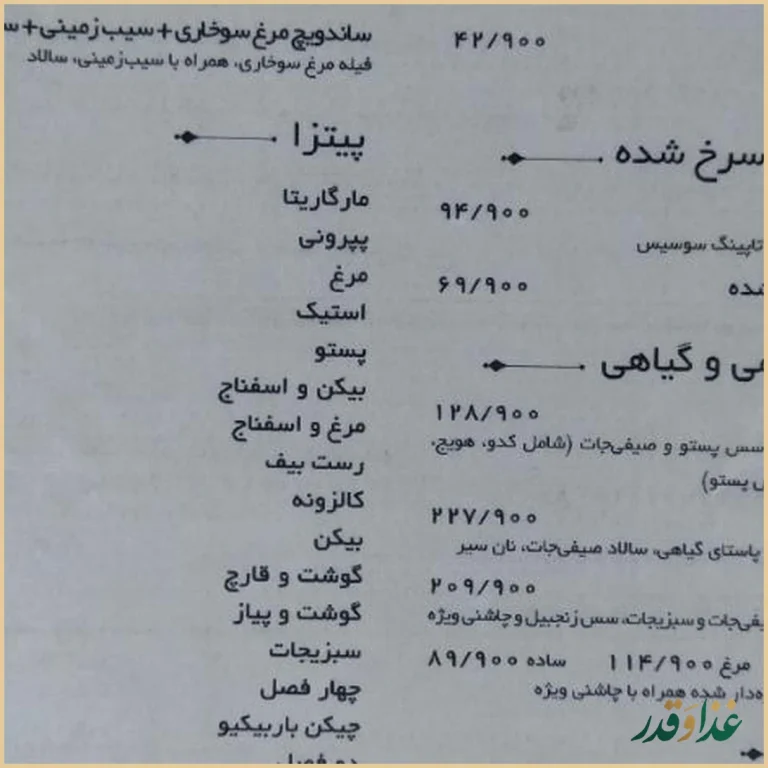 ۴۲/۹۰۰
سرخ شده
۹۴/۹۰۰
تاپینگ سوسیس
شده ۶۹/۹۰۰
و گیاهی
۱۲۸/۹۰۰
سس پستو و صیفی‌جات (شامل کدو، هویج،
پستو)
۲۲۷/۹۰۰
پاستای گیاهی، سالاد صیفی‌جات، نان سیر
۲۰۹/۹۰۰
صیفی‌جات و سبزیجات، سس زنجبیل و چاشنی ویژه
مرغ ۱۱۴/۹۰۰ ساده ۸۹/۹۰۰
شده همراه با چاشنی ویژه
ساندویچ مرغ سوخاری + سیب‌زمینی +
فیله مرغ سوخاری، همراه با سیب‌زمینی، سالاد
پیتزا
مارگاریتا
پپرونی
مرغ
استیک
پستو
بیکن و اسفناج
مرغ و اسفناج
رست بیف
کالزونه
بیکن
گوشت و قارچ
گوشت و پیاز
سبزیجات
چهار فصل
چیکن باربیکیو
غذا و قدر